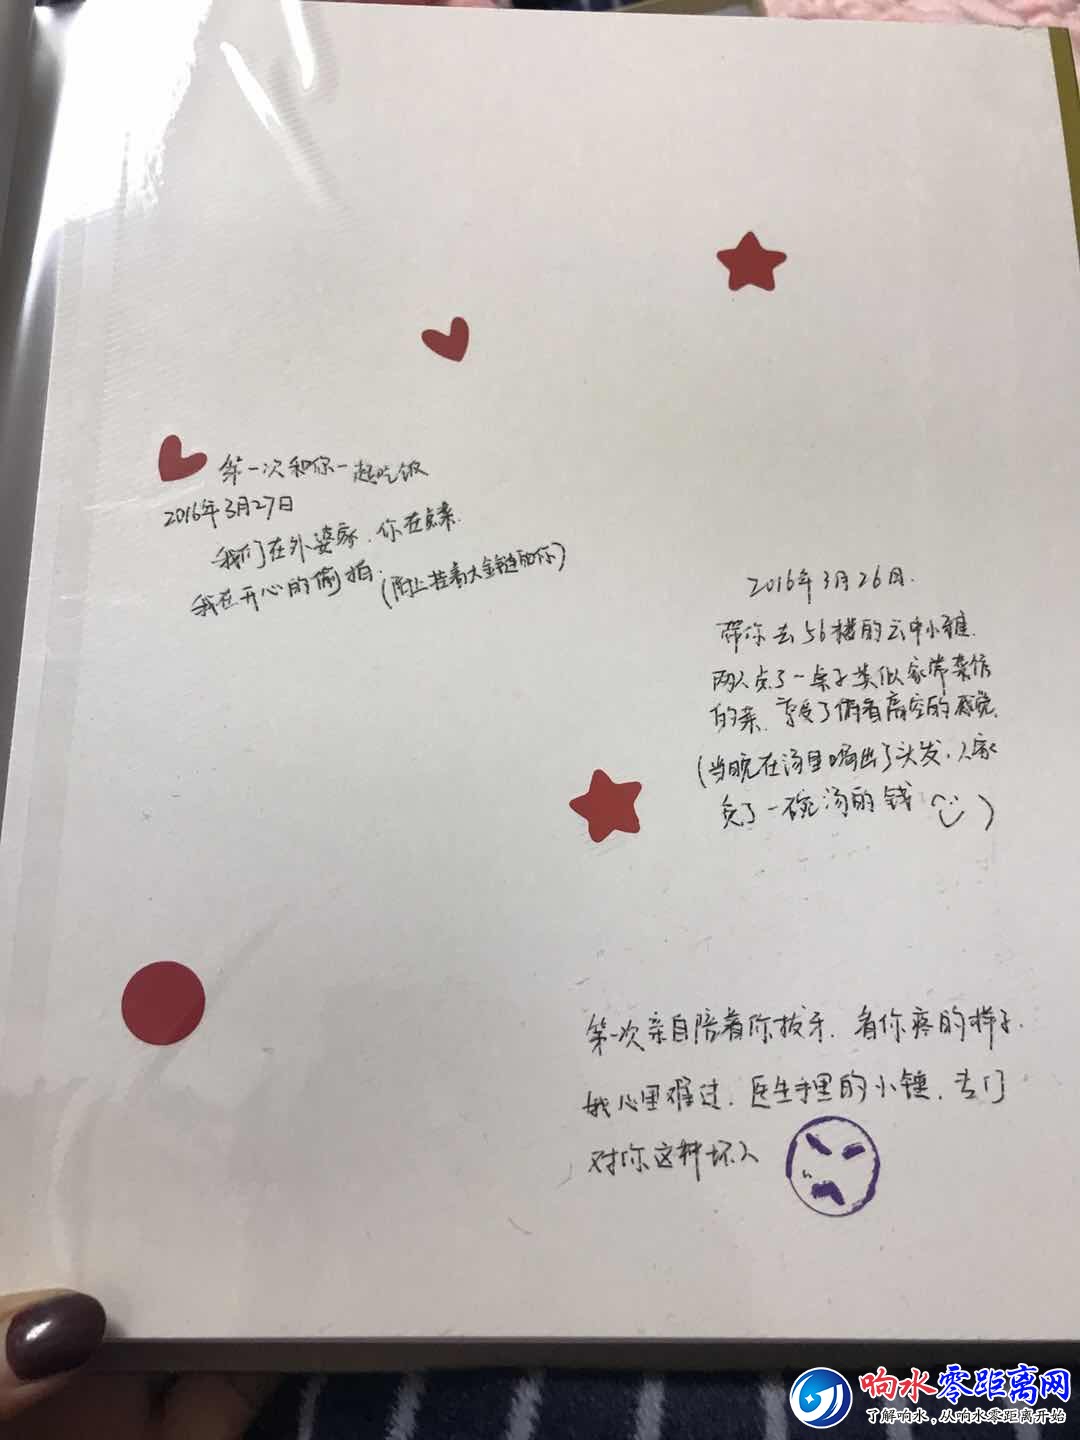 第一次和你一起吃饭
2016年3月27日
我们在外婆家，你在点菜.
我在开心的偷拍.
(附上挂着大金链的你)
2016年3月26日.
带你去56楼的云中小雅.
两人点了一桌子类似家常菜馆
的菜.享受了俯看高空的感觉.
(当晚在汤里喝出了头发，人家
免了一碗汤的钱 )
第一次亲自陪着你拔牙.看你疼的样子.
我心里难过.医生手里的小锤.专门
对你这种坏人
响水零距离网
了解响水，从响水零距离开始